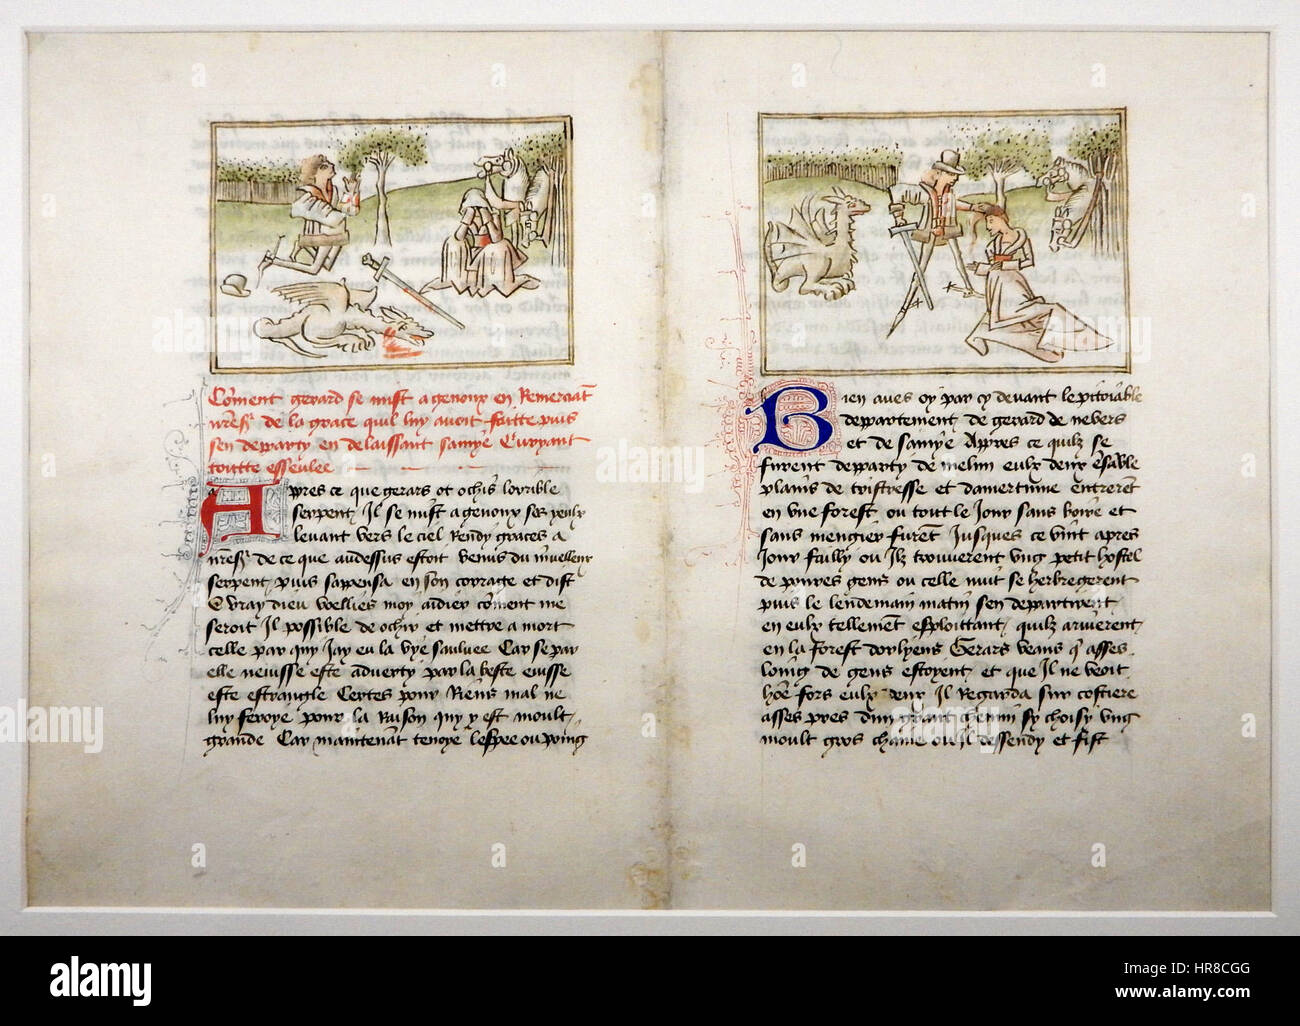 Coment gerard se mist a genoux en Remerciāt
nr̄es de la grace quil luy avoit faitte puis
sen departy en delaissant Euryant
toutte esseulee
Apres ce que gerars ot ochis lorrible
serpent, Il se mist a genoux ses yeulx
levant vers le ciel Rendy graces a
nr̄es de ce que audessus estoit venus du
serpent, puis sappensa en son corrage et dist
O vray dieu voellies moy aidier cōment me
seroit Il possible de ochir et mettre a mort
celle par quy Jay eu la vye saulvee Car se par
elle neuisse este adverty par la beste euisse
este estrangle Certes pour Riens mal ne
luy feroye pour la Raison quy y est moult
grande Car maintenāt tenoye lespee ou poing
Bien aves oy par cy devant le pitoiable
departement, de gerard de nevers
et de Apres ce quilz se
furent departy de eulx deux ēsāble
plains de tristresse et damertume entrerēt
en une forest ou tout le Jour sans boire et
sans mengier furēt Jusques ce vint apres
Jour failly ou Ilz trouverent ung petit hostel
de povres gens ou celle nuit se herbregerent
puis le lendemain matin sen departirent
en eulx tellement esploittant, quilz ariverent
en la forest dorlyens Gerars veans q̄ asses
loing de gens estoyent et que Il ne veoit
hōe fors eulx deux Il Regarda sur costiere
asses pres dun grant chemin sy choisy ung
moult gros chaine ou il dessendy et fist
alamy
Image ID: HR8CGG
www.alamy.com